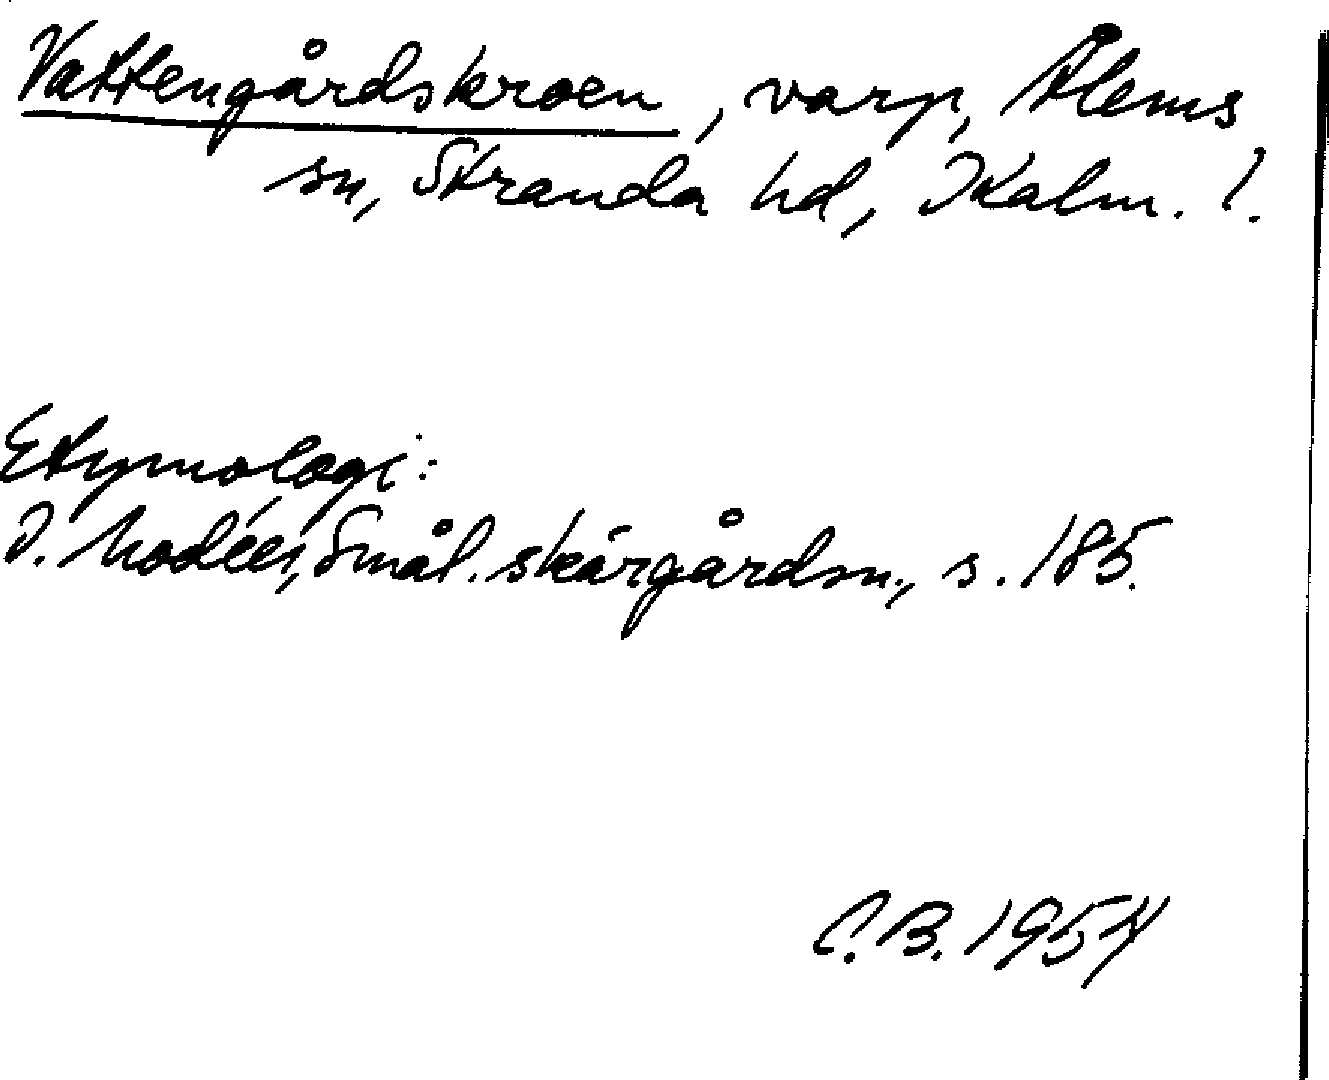 Vattengårdskroen, varp, Ålems
sn, Stranda hd, Kalm. l.
Etymologi:
I. Modéer, Smål. skärgårdsn., s. 185.
C.B. 1954